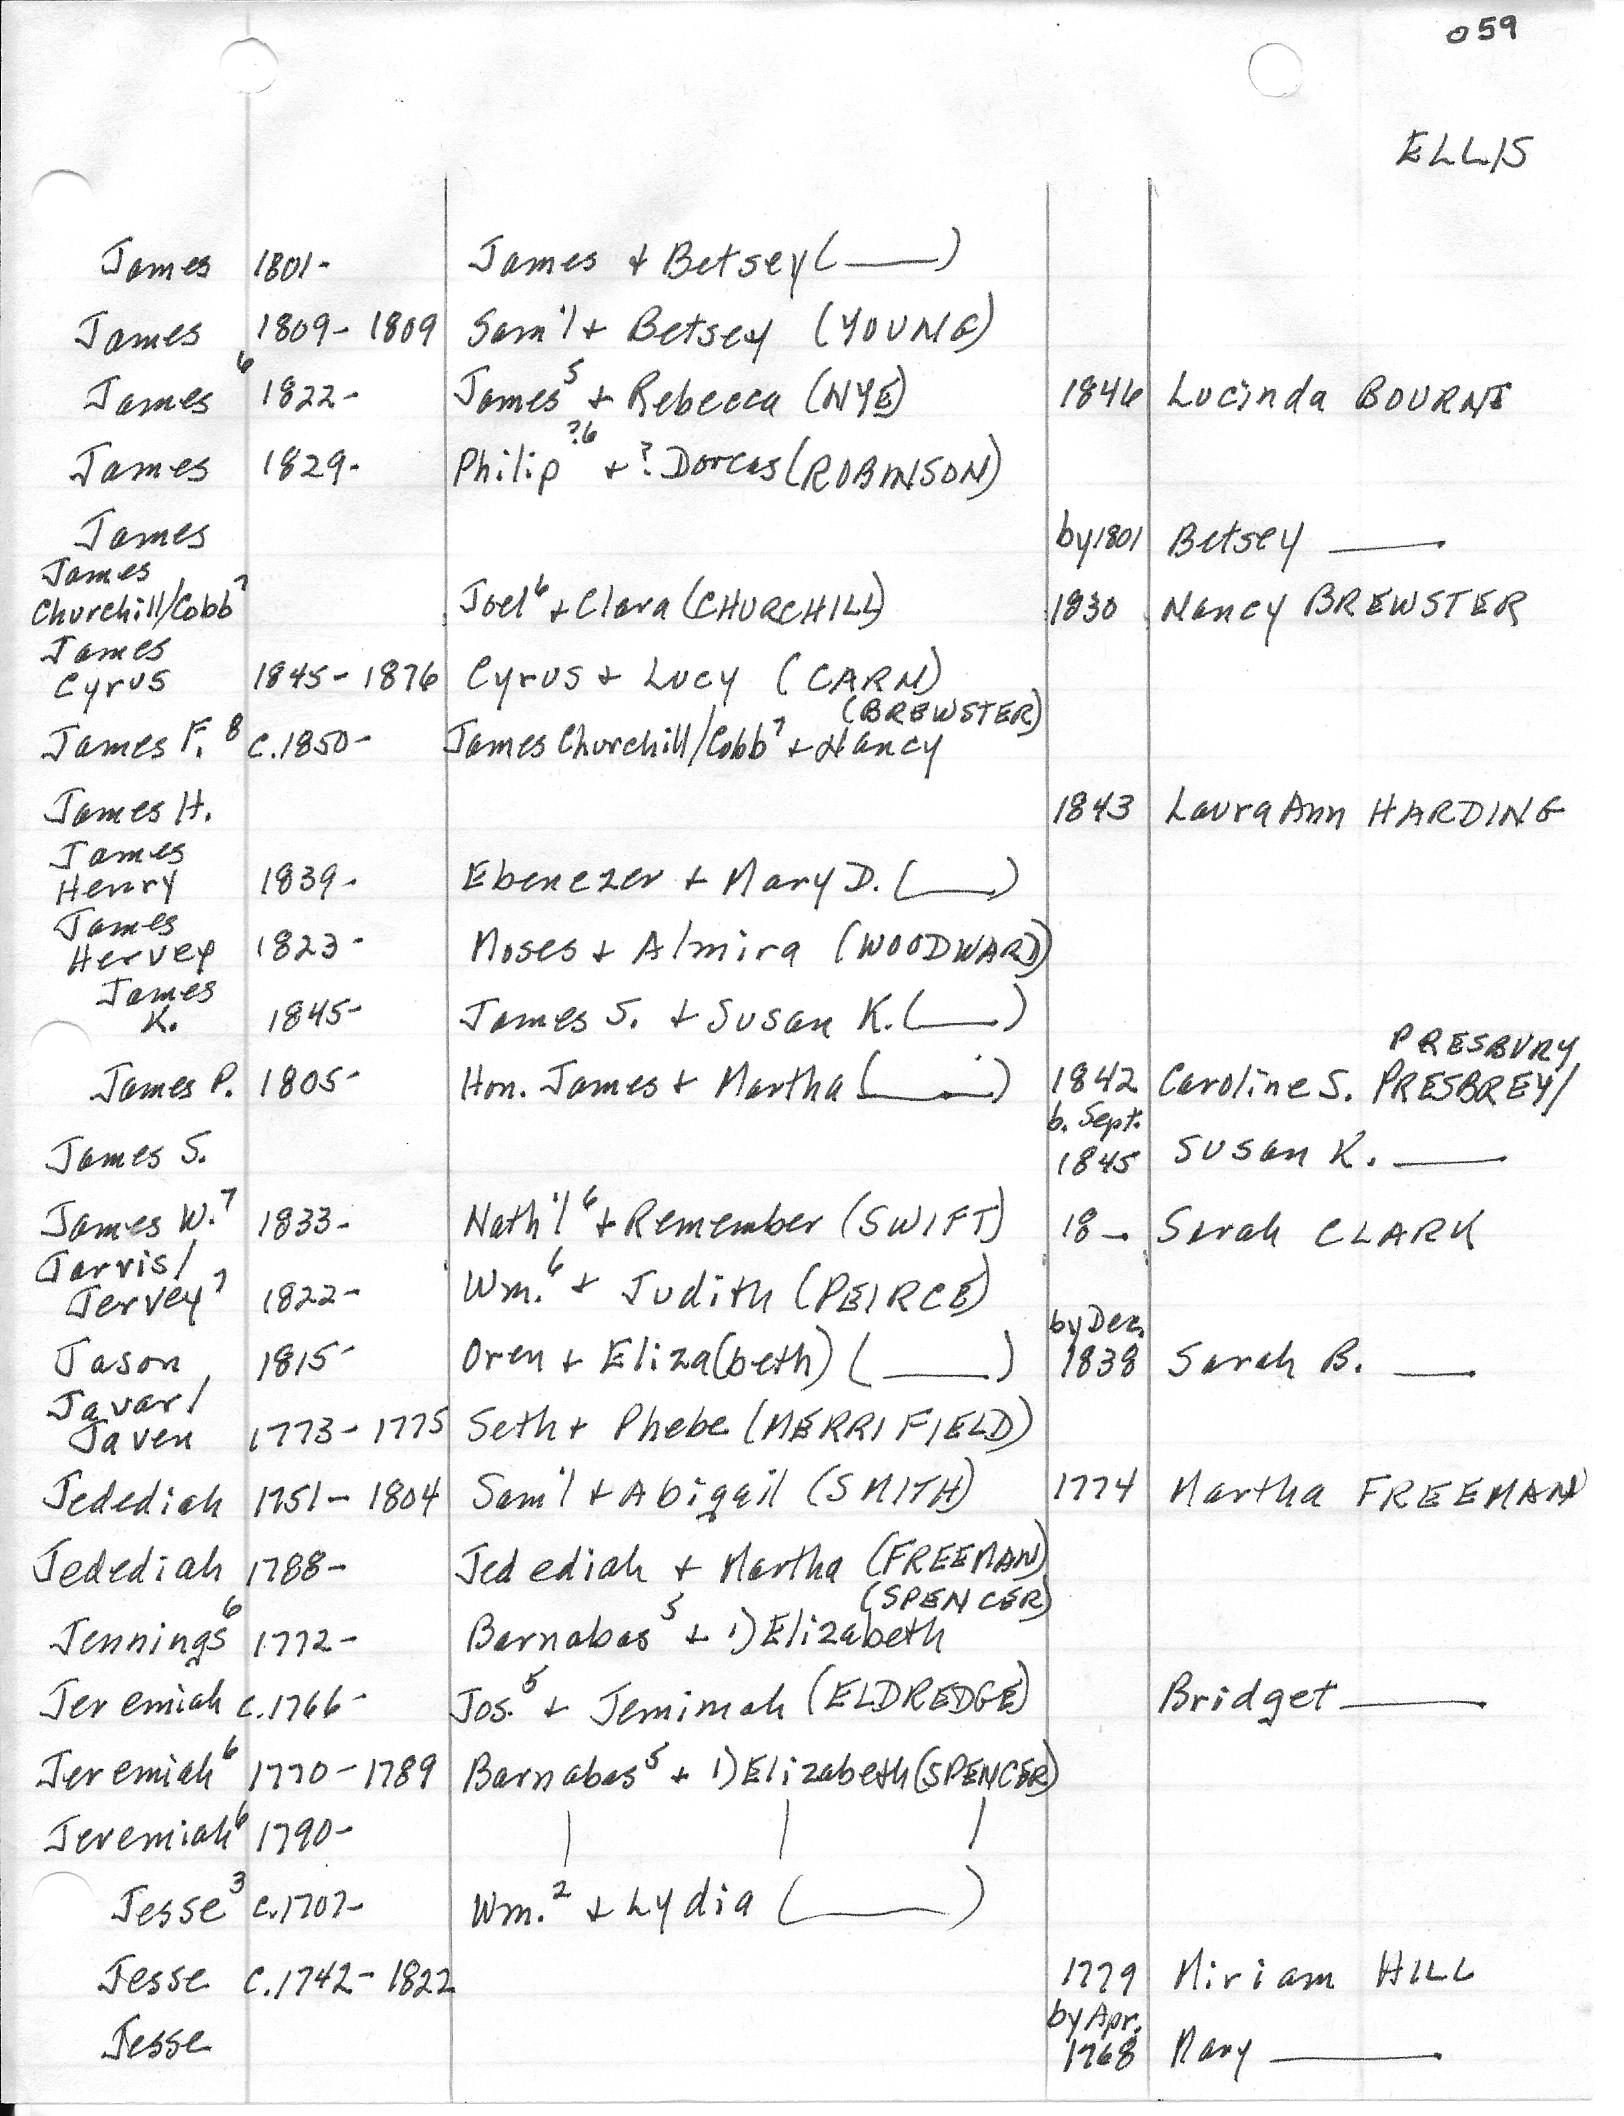 059
ELLIS
James 1801- James + Betsey (____)
James 1809-1809 Sam'l + Betsey (YOUNG)
James⁶ 1822- James⁵ + Rebecca (NYE) 1846 Lucinda BOURNE
James 1829- Philip ?⁶ + ? Dorcas (ROBINSON)
James by 1801 Betsey ____
James
Churchill/Cobb⁷ Joel⁶ + Clara (CHURCHILL) 1830 Nancy BREWSTER
James
Cyrus 1845-1876 Cyrus + Lucy (CARN)
(BREWSTER)
James F.⁸ c.1850- James Churchill/Cobb⁷ + Nancy
James H. 1843 Laura Ann HARDING
James
Henry 1839- Ebenezer + Mary D. (____)
James
Hervey 1823- Moses + Almira (WOODWARD)
James
K. 1845- James S. + Susan K. (____)
PRESBURY
James P. 1805- Hon. James + Martha (____) 1842 Caroline S. PRESBREY/
b. Sept.
James S. 1845 Susan K. ____
James W.⁷ 1833- Nath'l⁶ + Remember (SWIFT) 18- Sarah CLARK
Jarvis/
Jervey⁷ 1822- Wm.⁶ + Judith (PEIRCE)
by Dec.
Jason 1815- Oren + Eliza(beth) (____) 1838 Sarah B. ____
Javar/
Javen 1773-1775 Seth + Phebe (MERRIFIELD)
Jedediah 1751-1804 Sam'l + Abigail (SMITH) 1774 Martha FREEMAN
Jedediah 1788- Jedediah + Martha (FREEMAN)
(SPENCER)
Jennings⁶ 1772- Barnabas⁵ + 1) Elizabeth
Jeremiah c.1766- Jos.⁵ + Jemimah (ELDREDGE) Bridget ____
Jeremiah⁶ 1770-1789 Barnabas⁵ + 1) Elizabeth (SPENCER)
Jeremiah⁶ 1790- | | |
Jesse³ c.1707- Wm.² + Lydia (____)
Jesse c.1742-1822 1779 Miriam HILL
by Apr.
Jesse 1768 Mary ____